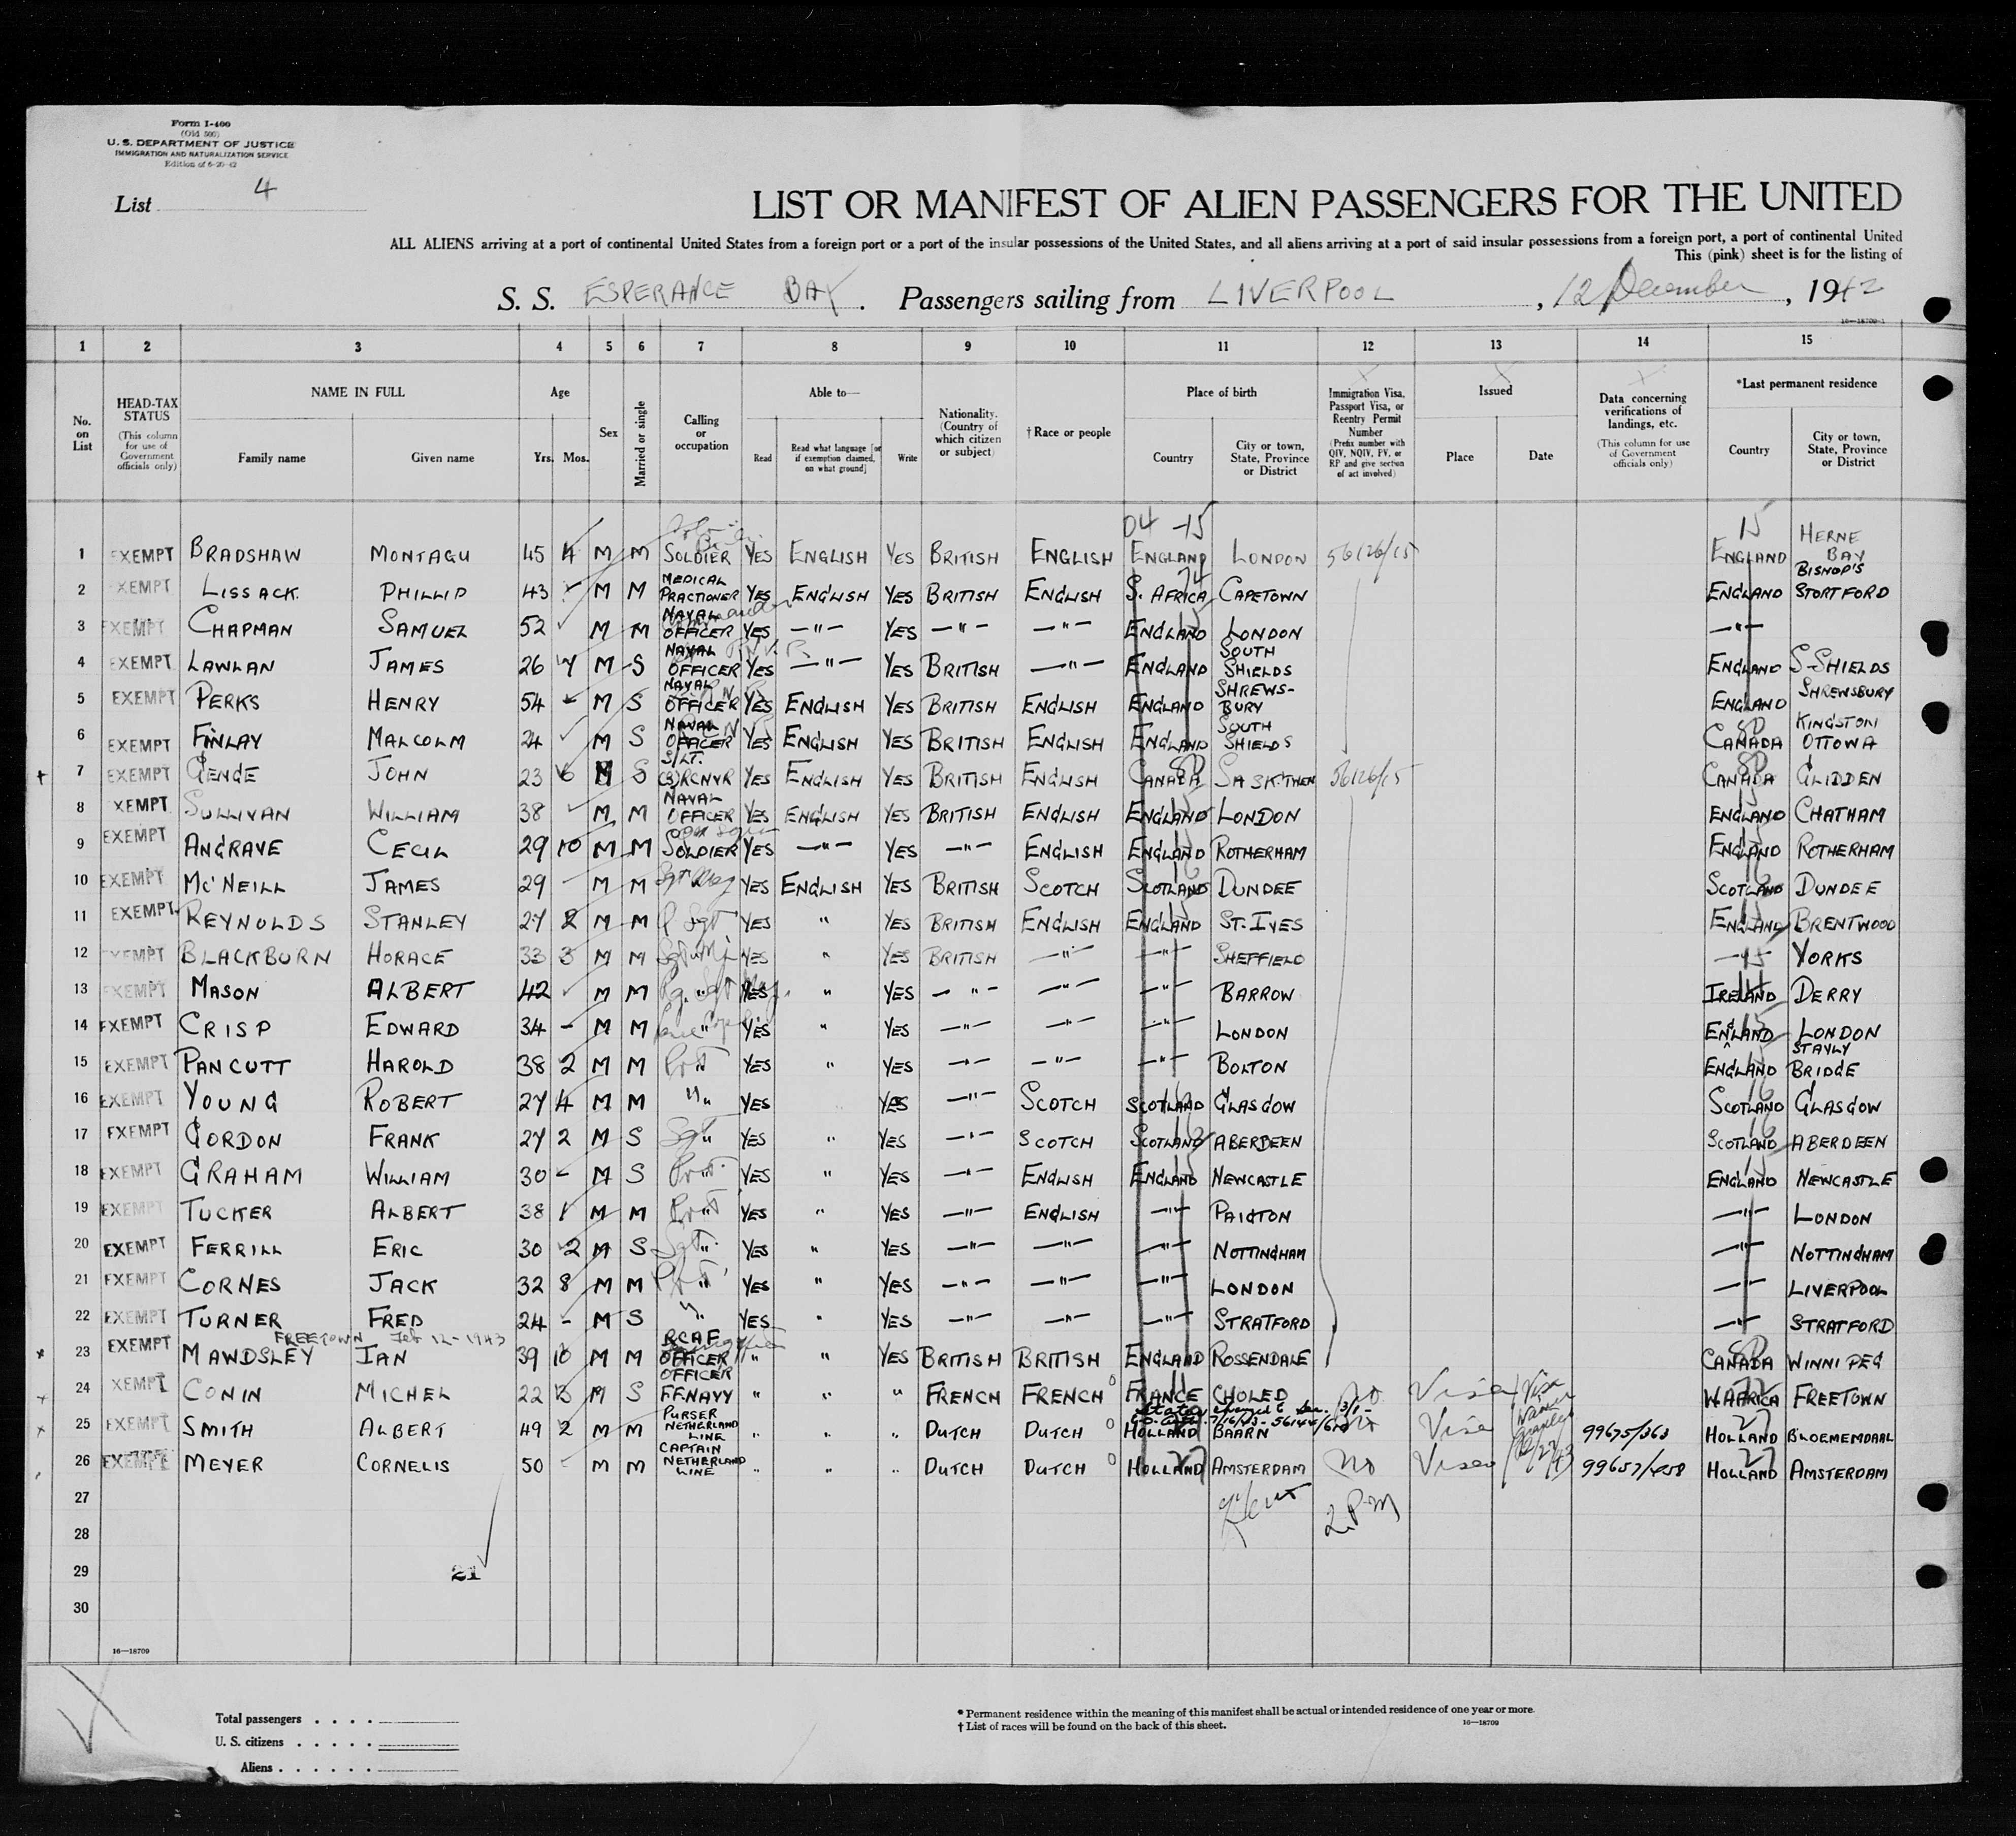 Form I-400
(Old 500)
U. S. DEPARTMENT OF JUSTICE
IMMIGRATION AND NATURALIZATION SERVICE
Edition of 6-20-42
List 4
LIST OR MANIFEST OF ALIEN PASSENGERS FOR THE UNITED
ALL ALIENS arriving at a port of continental United States from a foreign port or a port of the insular possessions of the United States, and all aliens arriving at a port of said insular possessions from a foreign port, a port of continental United
This (pink) sheet is for the listing of
S. S. ESPERANCE BAY. Passengers sailing from LIVERPOOL, 12 December, 1942
16—18709-1
1 2 3 4 5 6 7 8 9 10 11 12 13 14 15
No. on List
HEAD-TAX STATUS (This column for use of Government officials only)
NAME IN FULL Family name Given name
Age Yrs. Mos.
Sex
Married or single
Calling or occupation
Able to— Read Read what language [or if exemption claimed, on what ground] Write
Nationality. (Country of which citizen or subject)
†Race or people
Place of birth Country City or town, State, Province or District
Immigration Visa, Passport Visa, or Reentry Permit Number (Prefix number with QIV, NQIV, PV, or RP and give section of act involved)
Issued Place Date
Data concerning verifications of landings, etc. (This column for use of Government officials only)
*Last permanent residence Country City or town, State, Province or District
04 -15 15
1 EXEMPT BRADSHAW MONTAGU 45 4 M M SOLDIER YES ENGLISH YES BRITISH ENGLISH ENGLAND LONDON 56126/15 ENGLAND HERNE BAY
2 EXEMPT LISSACK. PHILLIP 43 M M MEDICAL PRACTIONER YES ENGLISH YES BRITISH ENGLISH S. AFRICA CAPETOWN ENGLAND BISHOP'S STORTFORD
3 EXEMPT CHAPMAN SAMUEL 52 M M NAVAL OFFICER YES —"— YES —"— —"— ENGLAND LONDON —"—
4 EXEMPT LAWLAN JAMES 26 7 M S NAVAL OFFICER YES —"— YES BRITISH —"— ENGLAND SOUTH SHIELDS ENGLAND S-SHIELDS
5 EXEMPT PERKS HENRY 54 - M S NAVAL OFFICER YES ENGLISH YES BRITISH ENGLISH ENGLAND SHREWS-BURY ENGLAND SHREWSBURY
6 EXEMPT FINLAY MALCOLM 24 M S NAVAL OFFICER YES ENGLISH YES BRITISH ENGLISH ENGLAND SOUTH SHIELDS CANADA KINGSTON OTTOWA
7 EXEMPT GENGE JOHN 23 6 M S S/LT. (S) RCNVR YES ENGLISH YES BRITISH ENGLISH CANADA SASK'THEN 56126/15 CANADA GLIDDEN
8 XEMPT SULLIVAN WILLIAM 38 - M M NAVAL OFFICER YES ENGLISH YES BRITISH ENGLISH ENGLAND LONDON ENGLAND CHATHAM
9 EXEMPT ANGRAVE CECIL 29 10 M M SOLDIER YES —"— YES —"— ENGLISH ENGLAND ROTHERHAM ENGLAND ROTHERHAM
10 EXEMPT Mc'NEILL JAMES 29 - M M Sgt Maj YES ENGLISH YES BRITISH SCOTCH SCOTLAND DUNDEE SCOTLAND DUNDEE
11 EXEMPT REYNOLDS STANLEY 27 2 M M Sgt YES " YES BRITISH ENGLISH ENGLAND ST. IVES ENGLAND BRENTWOOD
12 EXEMPT BLACKBURN HORACE 33 3 M M YES " YES BRITISH —"— —"— SHEFFIELD —"— YORKS
13 EXEMPT MASON ALBERT 42 M M YES " YES —"— —"— —"— BARROW IRELAND DERRY
14 EXEMPT CRISP EDWARD 34 - M M YES " YES —"— —"— —"— LONDON ENGLAND LONDON
15 EXEMPT PANCUTT HAROLD 38 2 M M Pvt YES " YES —"— —"— —"— BOLTON ENGLAND STAYLY BRIDGE
16 EXEMPT YOUNG ROBERT 27 4 M M " YES YES —"— SCOTCH SCOTLAND GLASGOW SCOTLAND GLASGOW
17 EXEMPT GORDON FRANK 27 2 M S Sgt YES " YES —"— SCOTCH SCOTLAND ABERDEEN SCOTLAND ABERDEEN
18 EXEMPT GRAHAM WILLIAM 30 - M S Pvt YES " YES —"— ENGLISH ENGLAND NEWCASTLE ENGLAND NEWCASTLE
19 EXEMPT TUCKER ALBERT 38 1 M M Pvt YES " YES —"— ENGLISH —"— PAIGTON —"— LONDON
20 EXEMPT FERRILL ERIC 30 2 M S Sgt YES " YES —"— —"— —"— NOTTINGHAM —"— NOTTINGHAM
21 EXEMPT CORNES JACK 32 8 M M Pvt YES " YES —"— —"— —"— LONDON —"— LIVERPOOL
22 EXEMPT TURNER FRED 24 - M S " YES " YES —"— —"— —"— STRATFORD —"— STRATFORD
FREETOWN Feb 12-1943
23 EXEMPT MAWDSLEY IAN 39 10 M M RCAF OFFICER " " YES BRITISH BRITISH ENGLAND ROSSENDALE CANADA WINNIPEG
24 XEMPT CONIN MICHEL 22 M S OFFICER F.F.NAVY " " " FRENCH FRENCH FRANCE CHOLED No Visa W.AFRICA FREETOWN
25 EXEMPT SMITH ALBERT 49 2 M M PURSER NETHERLAND LINE " " " DUTCH DUTCH HOLLAND BAARN Visa 99675/363 HOLLAND BLOEMENDAAL
26 EXEMPT MEYER CORNELIS 50 - M M CAPTAIN NETHERLAND LINE " " " DUTCH DUTCH HOLLAND AMSTERDAM No Visa 99657/458 HOLLAND AMSTERDAM
27
2 P.M
28
29 21
30
16—18709
Total passengers . . . .
U. S. citizens . . . . .
Aliens . . . . . .
* Permanent residence within the meaning of this manifest shall be actual or intended residence of one year or more.
† List of races will be found on the back of this sheet.
16—18709